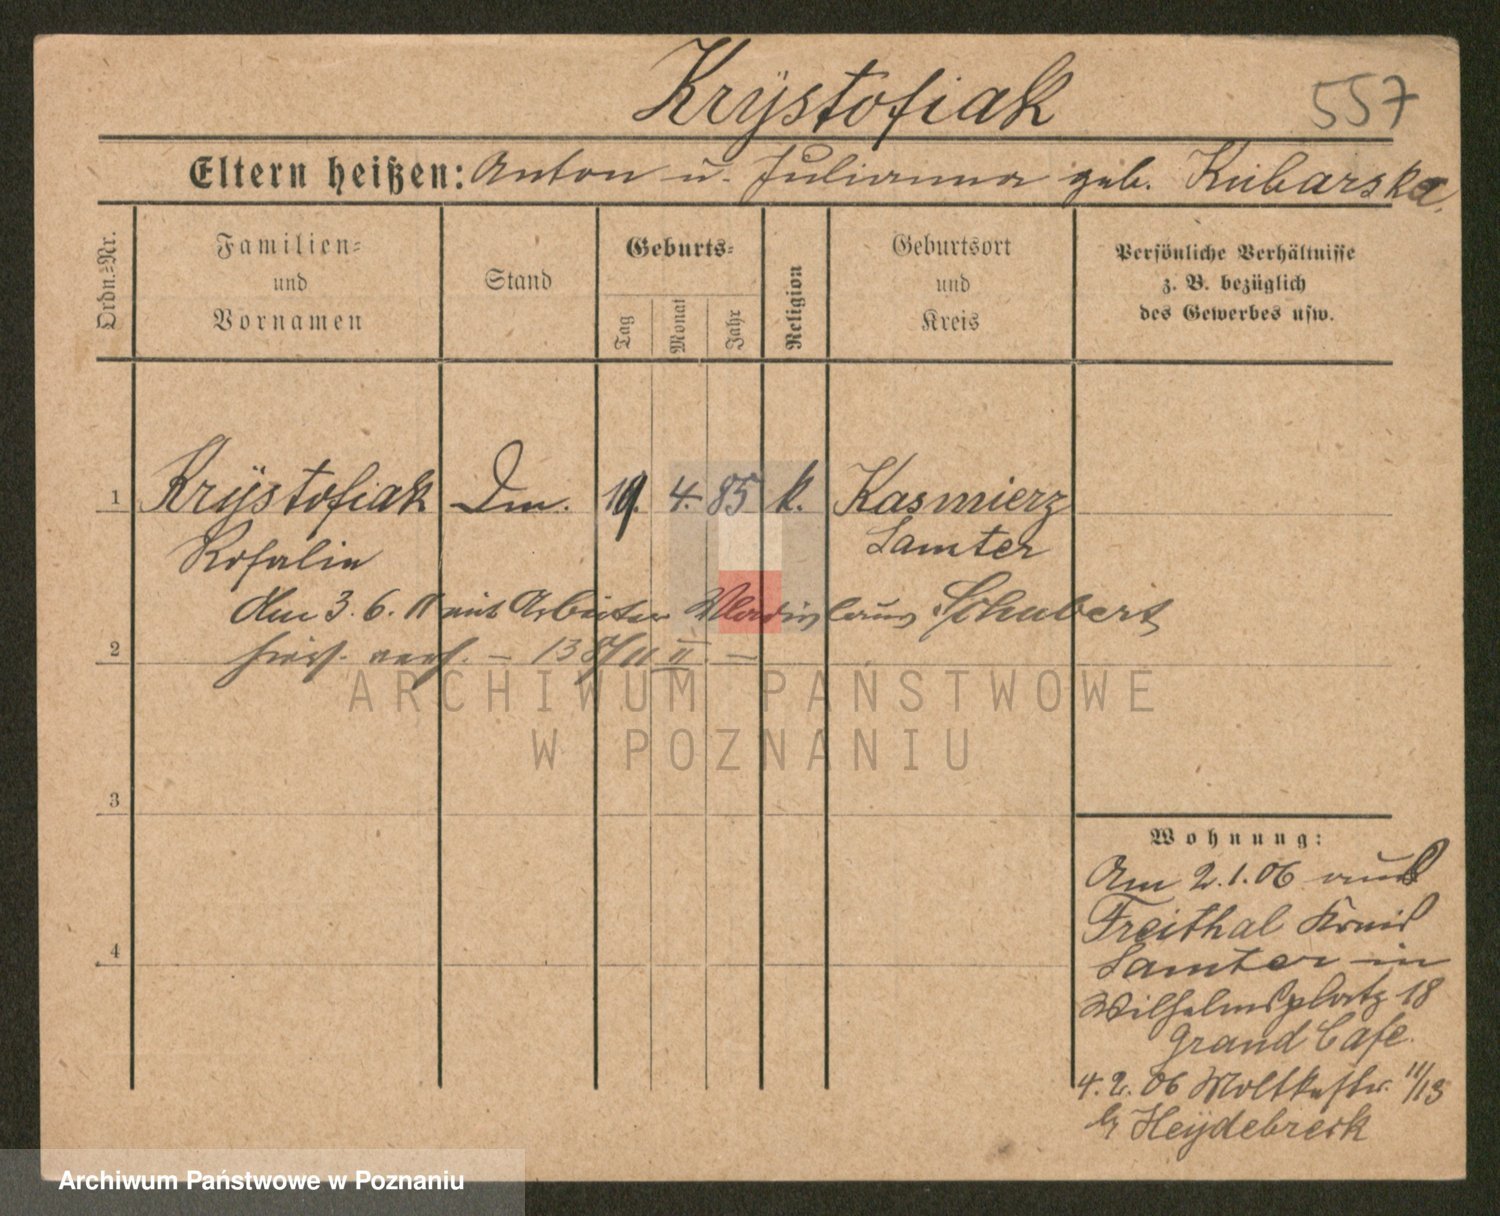 Krÿstofiak
557
Eltern heißen: Anton u. Julianna geb. Kubarska.
Ordn.=Nr.
Familien=
und
Vornamen
Stand
Geburts=
Tag
Monat
Jahr
Religion
Geburtsort
und
Kreis
Persönliche Verhältnisse
z. B. bezüglich
des Gewerbes usw.
1 Krÿstofiak Dm. 19. 4. 85 k. Kasmierz
Rosalie Samter
Am 3. 6. 11 mit Arbeiter Wladislaus Schubert
2 hier verh.
ARCHIWUM PAŃSTWOWE
W POZNANIU
3
4
Wohnung:
Am 2.1.06 aus
Freithal Kreis
Samter in
Wilhelmsplatz 18
Grand Cafe.
4. 2. 06 Moltkestr. 11/13
b/ Heÿdebreck
Archiwum Państwowe w Poznaniu